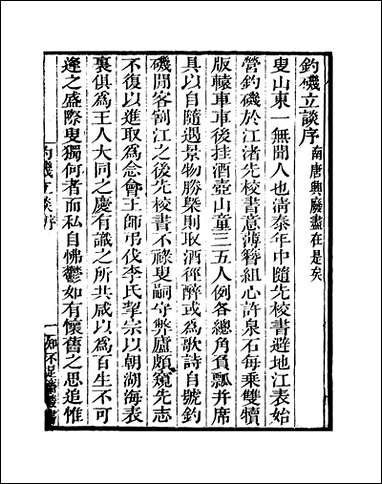 釣磯立談序 南唐興廢盡在是矣
叟山東一無聞人也清泰年中隨先校書避地江表始
營釣磯於江渚先校書意薄簪組心許泉石每乘雙犢
版轅車車後挂酒壺山童三五人例各總角負瓢并席
具以自隨遇景物勝槩則取酒徑醉或為歌詩自號釣
磯閒客割江之後先校書不祿叟嗣守弊廬頗窺先志
不復以進取為念會王師弔伐李氏挈宗以朝湖海表
裏俱為王人大同之慶有識之所共咸以為百生不可
逢之盛際叟獨何者而私自怫鬱如有懷舊之思追惟
釣磯立談序
一
知不足齋叢書